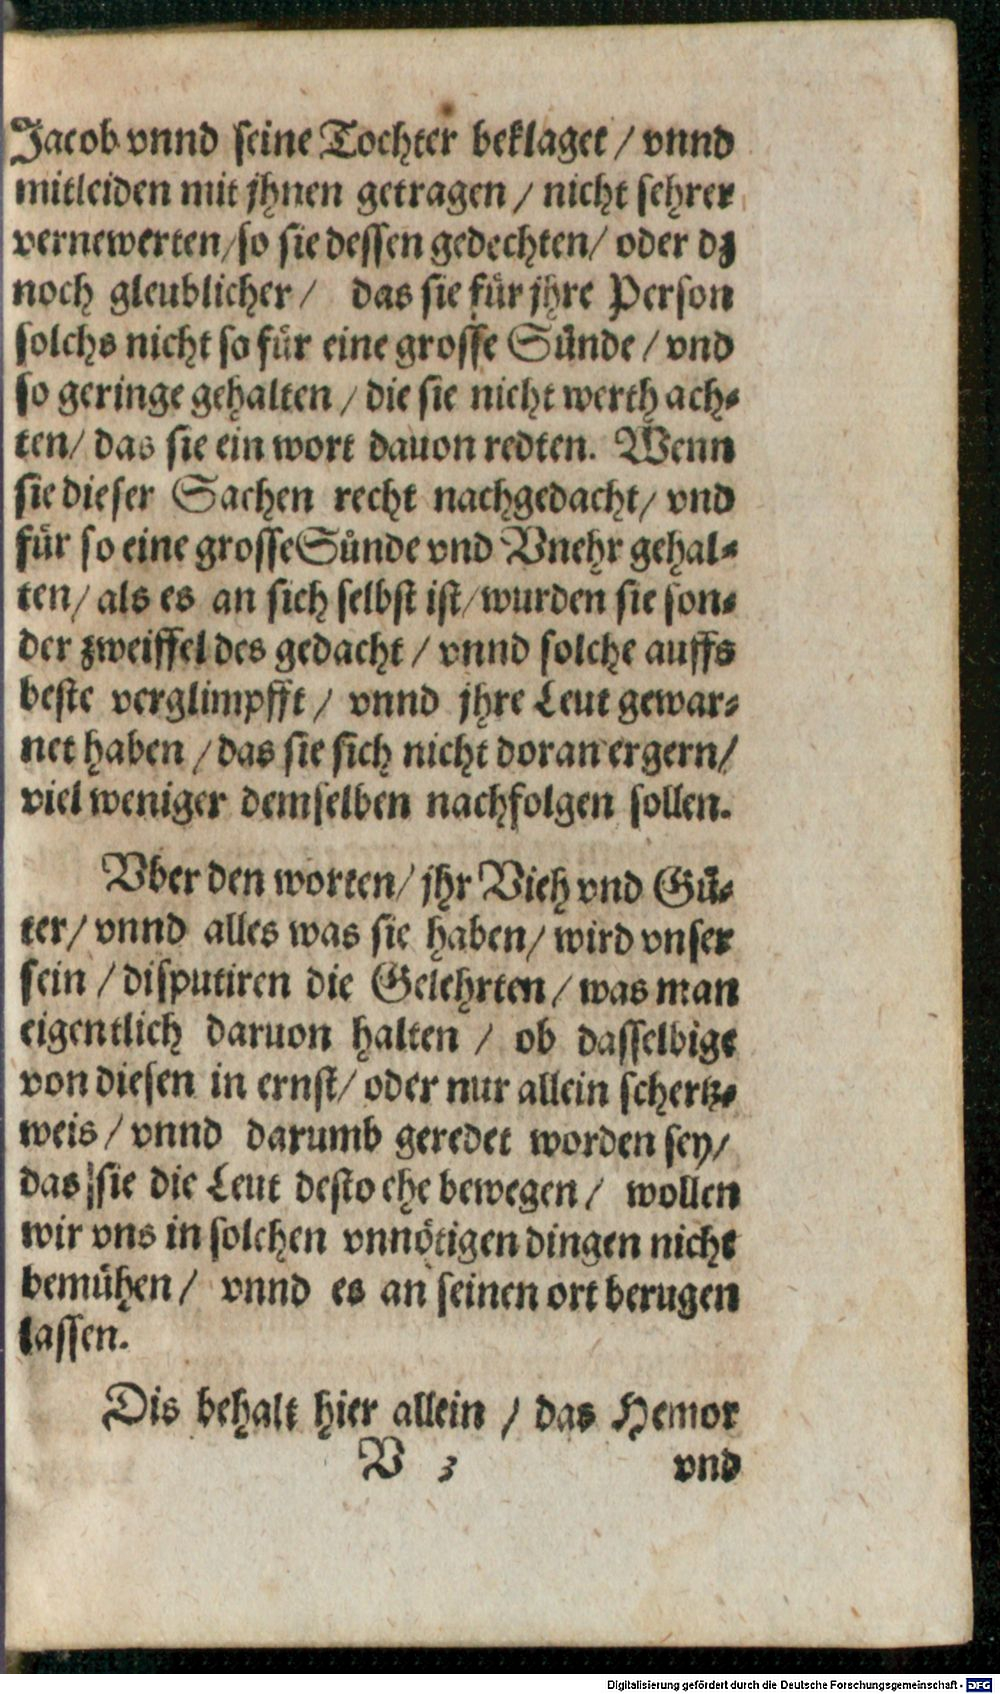 Jacob vnnd seine Tochter beklaget / vnnd
mitleiden mit jhnen getragen / nicht sehrer
vernewerten / so sie dessen gedechten / oder dz
noch gleublicher / das sie für jhre Person
solchs nicht so für eine grosse Sünde / vnd
so geringe gehalten / die sie nicht werth ach-
ten / das sie ein wort dauon redten. Wenn
sie dieser Sachen recht nachgedacht / vnd
für so eine grosse Sünde vnd Vnehr gehal-
ten / als es an sich selbst ist / wurden sie son-
der zweiffel des gedacht / vnnd solche auffs
beste verglimpfft / vnnd jhre Leut gewar-
net haben / das sie sich nicht doran ergern /
viel weniger demselben nachfolgen sollen.
Vber den worten / jhr Vieh vnd Gü-
ter / vnnd alles was sie haben / wird vnser
sein / disputiren die Gelehrten / was man
eigentlich daruon halten / ob dasselbige
von diesen in ernst / oder nur allein schertz-
weis / vnnd darumb geredet worden sey /
das sie die Leut desto ehe bewegen / wollen
wir vns in solchen vnnötigen dingen nicht
bemühen / vnnd es an seinen ort berugen
lassen.
Dis behalt hier allein / das Hemor
V 3 vnd
Digitalisierung gefördert durch die Deutsche Forschungsgemeinschaft - DFG